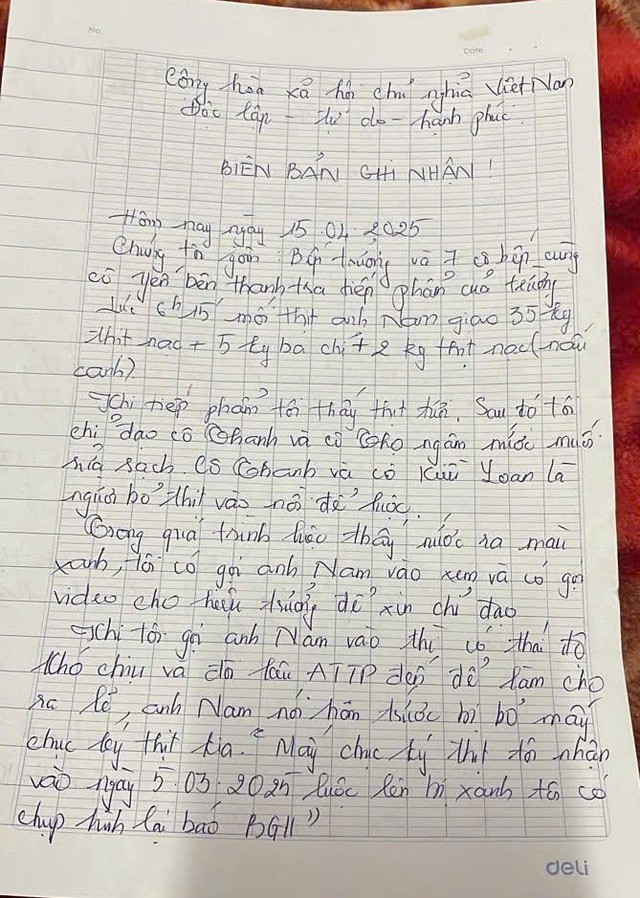 No.
Date
Cộng hòa xả hội chủ nghĩa Việt Nam
Độc lập - tự do - hạnh phúc.
BIÊN BẢN GHI NHẬN !
Hôm nay ngày 15.04.2025
Chúng tôi gồm: Bếp trưởng và 7 cô bếp cùng
cô Yến bên thanh tra tiếp phẩm của trường
Lúc 6h15' mối thịt anh Nam giao 35 kg
thịt nạc + 5 ky ba chỉ + 2 kg thịt nạc (nấu
canh).
Khi tiếp phẩm tôi thấy thịt tươi. Sau đó tôi
chỉ đạo cô Thanh và cô Thọ ngâm nước muối
rửa sạch. Cô Thanh và cô Kiều Loan là
người bỏ thịt vào nồi để luộc.
Trong quá trình luộc thấy nước ra màu
xanh, tôi có gọi anh Nam vào xem và có gọi
video cho hiệu trưởng để xin chỉ đạo
Khi tôi gọi anh Nam vào thì có thái độ
khó chịu và đòi kêu ATTP đến để làm cho
ra lẽ, anh Nam nói hôm trước bị bỏ mấy
chục ký thịt kia. " Mấy chục ký thịt tôi nhận
vào ngày 5.03.2025 luộc lên bị xanh tôi có
chụp hình lại báo BGH"
deli